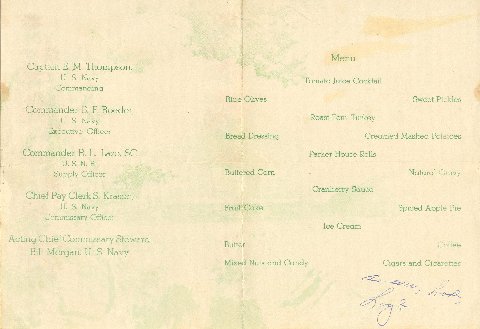 Captain E. M. Thompson,
U. S. Navy
Commanding
Commander B. F. Roeder
U. S. Navy
Executive Officer
Commander R. L. SC
U. S. N. R.
Supply Officer
Chief Pay Clerk S. Kramer
U. S. Navy
Commissary Officer
Acting Chief Commissary Steward
B. L. Morgan, U. S. Navy
Menu
Tomato Juice Cocktail
Ripe Olives Sweet Pickles
Roast Tom Turkey
Bread Dressing Creamed Mashed Potatoes
Parker House Rolls
Buttered Corn Natural Gravy
Cranberry Sauce
Fruit Cake Spiced Apple Pie
Ice Cream
Butter Coffee
Mixed Nuts and Candy Cigars and Cigarettes